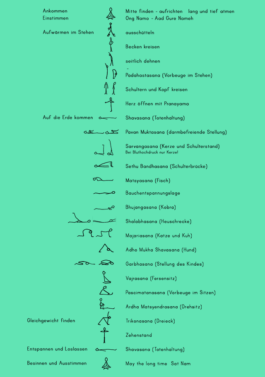 Ankommen Mitte finden - aufrichten lang und tief atmen
Einstimmen Ong Namo - Aad Gure Nameh
Aufwärmen im Stehen ausschütteln
Becken kreisen
seitlich dehnen
Padahastasana (Vorbeuge im Stehen)
Schultern und Kopf kreisen
Herz öffnen mit Pranayama
Auf die Erde kommen Shavasana (Totenhaltung)
Pavan Muktasana (darmbefreiende Stellung)
Sarvangasana (Kerze und Schulterstand)
Bei Bluthochdruck nur Kerze!
Sethu Bandhasana (Schulterbrücke)
Matsyasana (Fisch)
Bauchentspannungslage
Bhujangasana (Kobra)
Shalabhasana (Heuschrecke)
Majariasana (Katze und Kuh)
Adho Mukha Shavasana (Hund)
Garbhasana (Stellung des Kindes)
Vajrasana (Fersensitz)
Pascimotanasana (Vorbeuge im Sitzen)
Ardha Matsyendrasana (Drehsitz)
Gleichgewicht finden Trikonasana (Dreieck)
Zehenstand
Entspannen und Loslassen Shavasana (Totenhaltung)
Besinnen und Ausstimmen May the long time Sat Nam